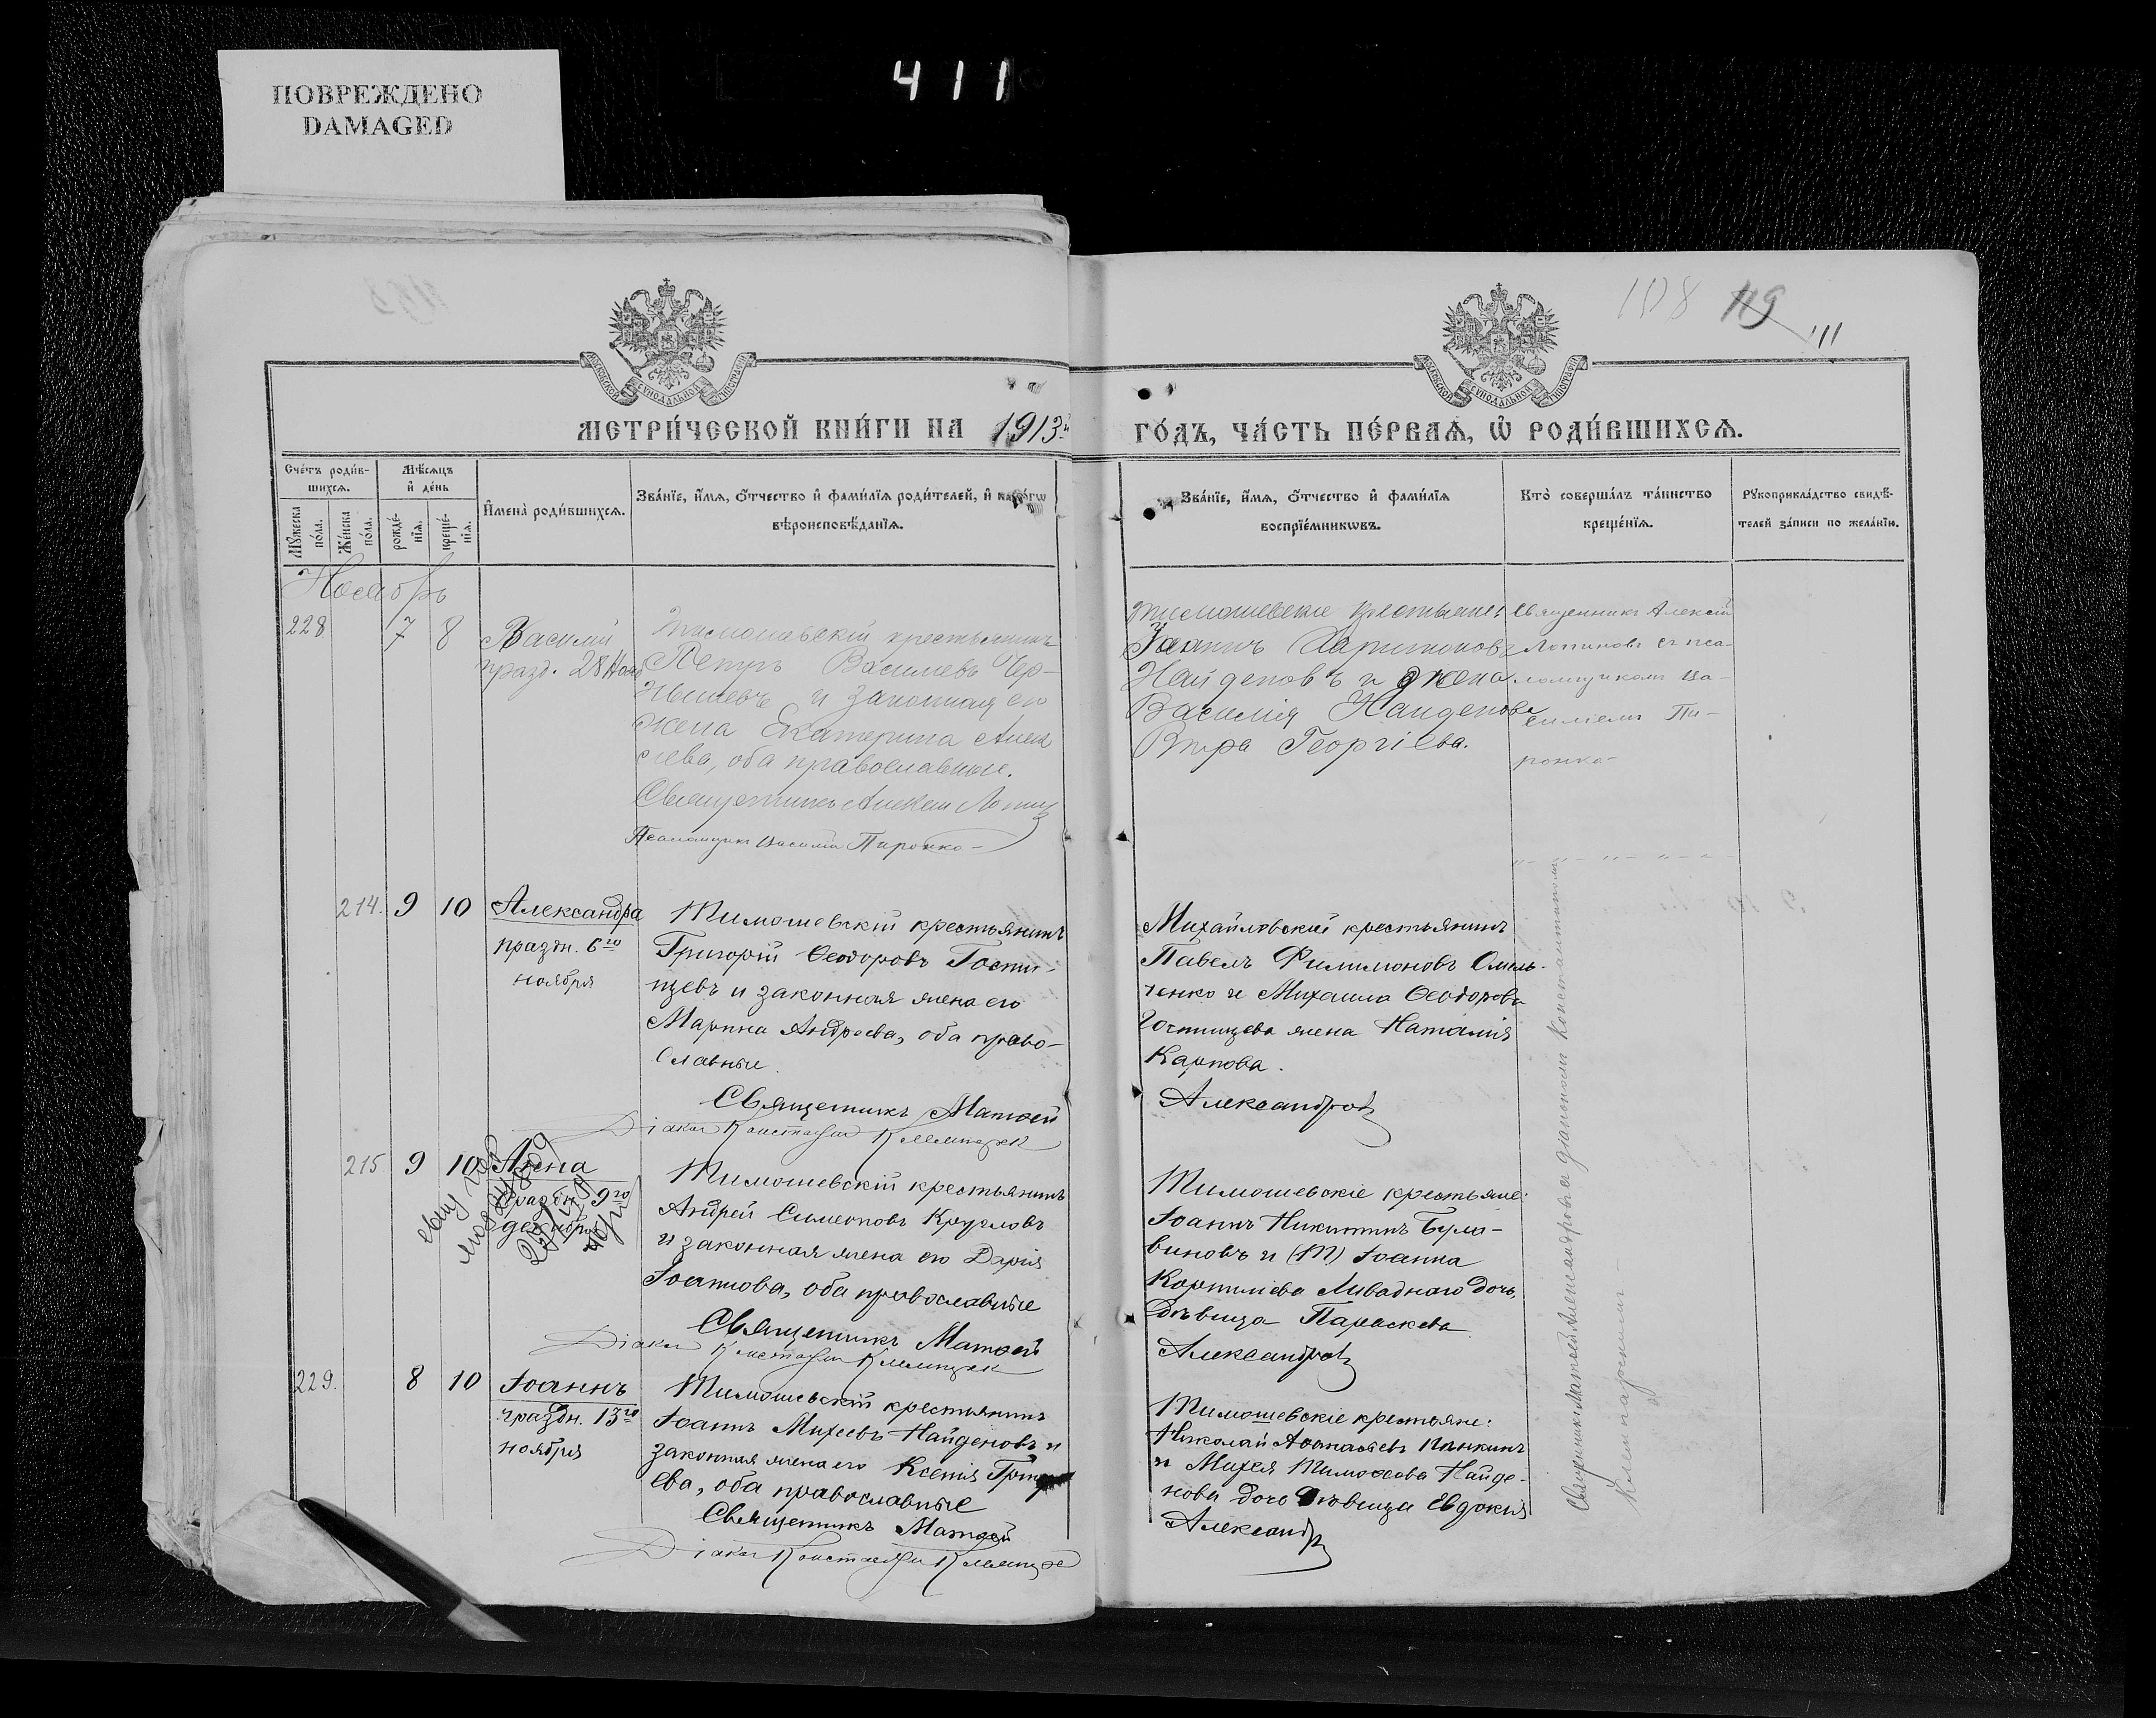 ПОВРЕЖДЕНО
DAMAGED
411
108 119 111
МЕТРИ́ЧЕСКОЙ КНИ́ГИ НА 1913 й
ГО́ДЪ, ЧА́СТЬ ПЕ́РВАѦ, Ѡ҆ РОДИ́ВШИХСѦ.
Сче́тъ роди́в-
шихсѧ.
Мѣ́сѧцъ
и҆ де́нь
Мꙋ́жеска
по́ла.
Же́нска
по́ла.
рожде́-
нїѧ.
креще́-
нїѧ.
И҆мена̀ роди́вшихсѧ.
Зва́нїе, и҆́мѧ, ѻ҆́тчество и҆ фами́лїѧ роди́телей, и҆ како́гѡ
вѣроисповѣ́данїѧ.
Зва́нїе, и҆́мѧ, ѻ҆́тчество и҆ фами́лїѧ
воспрїе́мникѡвъ.
Кто̀ соверша́лъ та́инство
креще́нїѧ.
Рꙋкоприкла́дство свидѣ́-
телей за́писи по жела́нїю.
Ноябрь
228 7 8 Василій
празд. 28 Нояб
Тимошевскій крестьянинъ
Петръ Василіевъ Чер-
нышевъ и законная его
жена Екатерина Алек
сіева, оба православные.
Священникъ Алексій
Псаломщикъ Василій Пиронко
Тимошевскіе крестьяне:
Іоаннъ Харитоновъ
Найденовъ и жена
Василія Найденова
Вѣра Георгіева.
Священникъ Алексій
съ пса-
ломщикомъ Ва-
силіемъ Пи-
ронко
214. 9 10 Александра
праздн. 6го
ноября
Тимошевскій крестьянинъ
Григорій Ѳеодоровъ Гости-
щевъ и законная жена его
Марина Андреева, оба право-
славные.
Священникъ Матѳей
Діаконъ Константинъ
Михайловскій крестьянинъ
Павелъ Филимоновъ Омель-
ченко и Михаила Ѳеодорова
Гостищева жена Наталія
Карпова.
Александровъ
215. 9 10 Анна
праздн. 9го
декабря
Тимошевскій крестьянинъ
Андрей Симеоновъ Кругловъ
и законная жена его Дарія
Іоаннова, оба православные
Священникъ Матѳей
Діаконъ Константинъ
Тимошевскіе крестьяне:
Іоаннъ Никитинъ Була-
виновъ и (Т) Іоанна
Корнилиева Ливаднаго дочь,
дѣвица Параскева
Александровъ
229. 8 10 Іоаннъ
праздн. 13го
ноября
Тимошевскій крестьянинъ
Іоаннъ Михеевъ Найденовъ и
законная жена его Ксенія
ева, оба православные
Священникъ Матѳей
Діаконъ Константинъ
Тимошевскіе крестьяне:
Николай Аѳанасіевъ
и Михея Тимоѳеева Найде-
нова дочь дѣвица Евдокія
Александр
Священникъ Матѳей Александровъ съ діакономъ Константиномъ